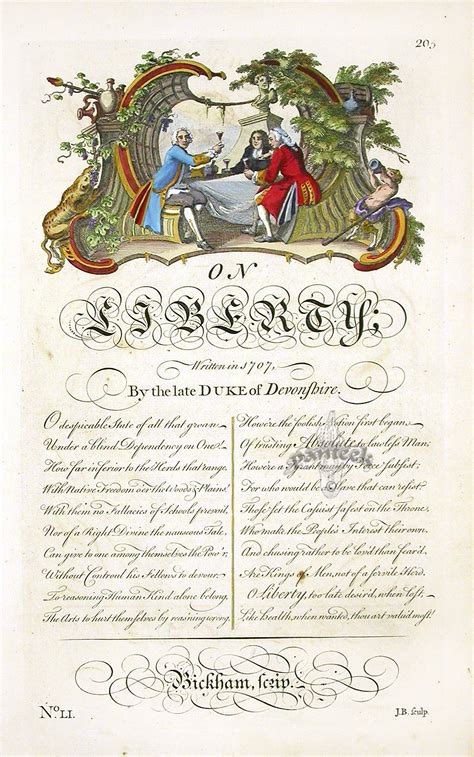 205
ON
LIBERTY;
Written in 1707,
By the late DUKE of Devonshire.
O despicable State of all that groan
Under a blind Dependency on One!
How far inferior to the Herds that range,
With Native Freedom o'er the Woods & Plains!
With them no Fallacies of Schools prevail,
Nor of a Right Divine the nauseous Tale,
Can give to one among themselves the Pow'r,
Without Controul his Fellows to devour;
To reasoning Human Kind alone belong,
The Arts to hurt themselves by reasoning wrong.
Howe're the foolish Notion first began,
Of trusting Absolute to lawless Man;
Howe're a Tyrant may by Force subsist;
For who would be a Slave that can resist?
Those set the Casuist safest on the Throne,
Who make the People's Interest their own,
And chusing rather to be lov'd than fear'd,
Are Kings of Men, not of a servile Herd.
O Liberty, too late desir'd, when lost,
Like health, when wanted, thou art valu'd most!
Bickham, scrip.
No. LI.
J.B. sculp.